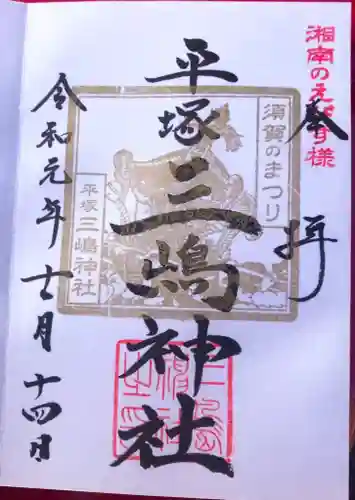 湘南のえびす様
奉拝
平塚三嶋神社
須賀のまつり
平塚三嶋神社
令和元年十二月十四日